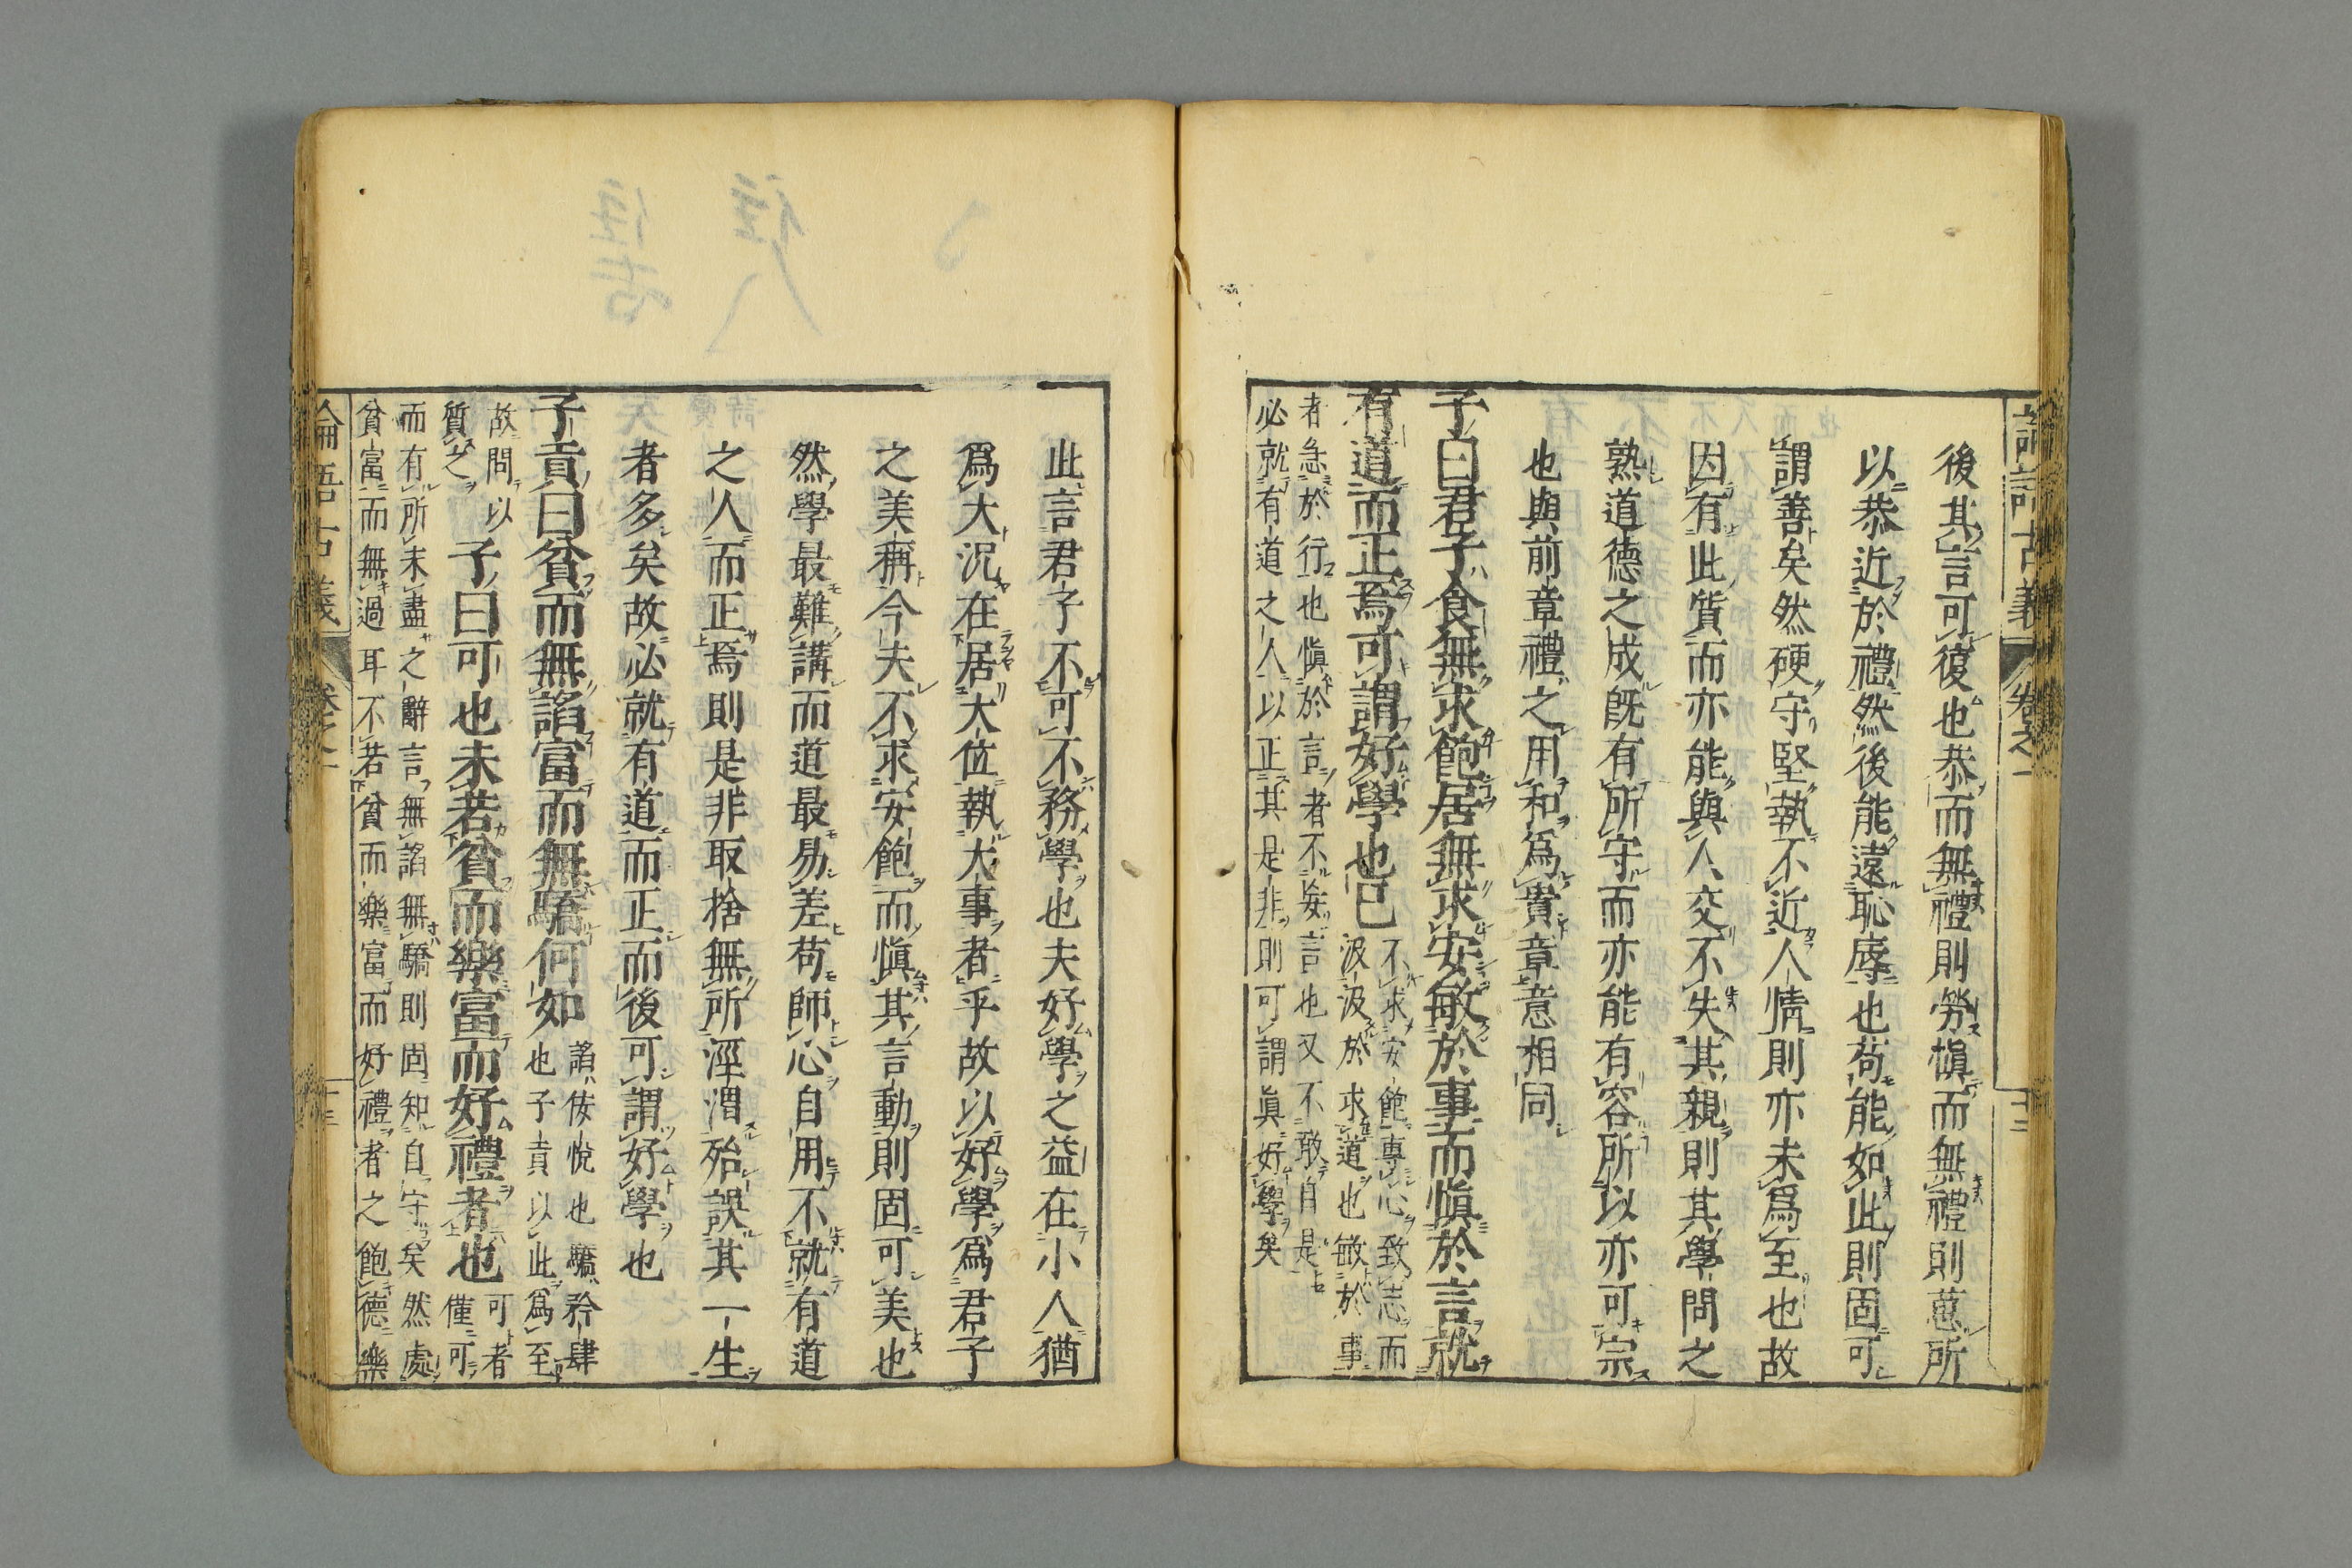 論語古義 卷之一 十二
後其言可復也恭而無禮則勞愼而無禮則葸所
以恭近於禮然後能遠恥辱也苟能如此則固可
謂善矣然硬守堅執不近人情則亦未爲至也故
因有此質而亦能與人交不失其親則其學問之
熟道德之成既有所守而亦能有容所以亦可宗
也與前章禮之用和爲貴章意相同
子曰君子食無求飽居無求安敏於事而愼於言就
有道而正焉可謂好學也已
不求安飽專心致志而
汲汲於求道也敏於事
者急於行也愼於言者不妄言也又不敢自是
必就有道之人以正其是非則可謂眞好學矣
此言君子不可不務學也夫好學之益在小人猶
爲大況在居大位執大事者乎故以好學爲君子
之美稱今夫不求安飽而愼其言動則固可美也
然學最難講而道最易差苟師心自用不就有道
之人而正焉則是非取捨無所涇渭殆誤其一生
者多矣故必就有道而正而後可謂好學也
子貢曰貧而無諂富而無驕何如
諂佞悅也驕矜肆
也子貢以此爲至
故問以
質之
子曰可也未若貧而樂富而好禮者也
可者
僅可
而有所未盡之辭言無諂無驕則固知自守矣然處
貧富而無過耳不若貧而樂富而好禮者之飽德樂
論語古義 卷之一 十三